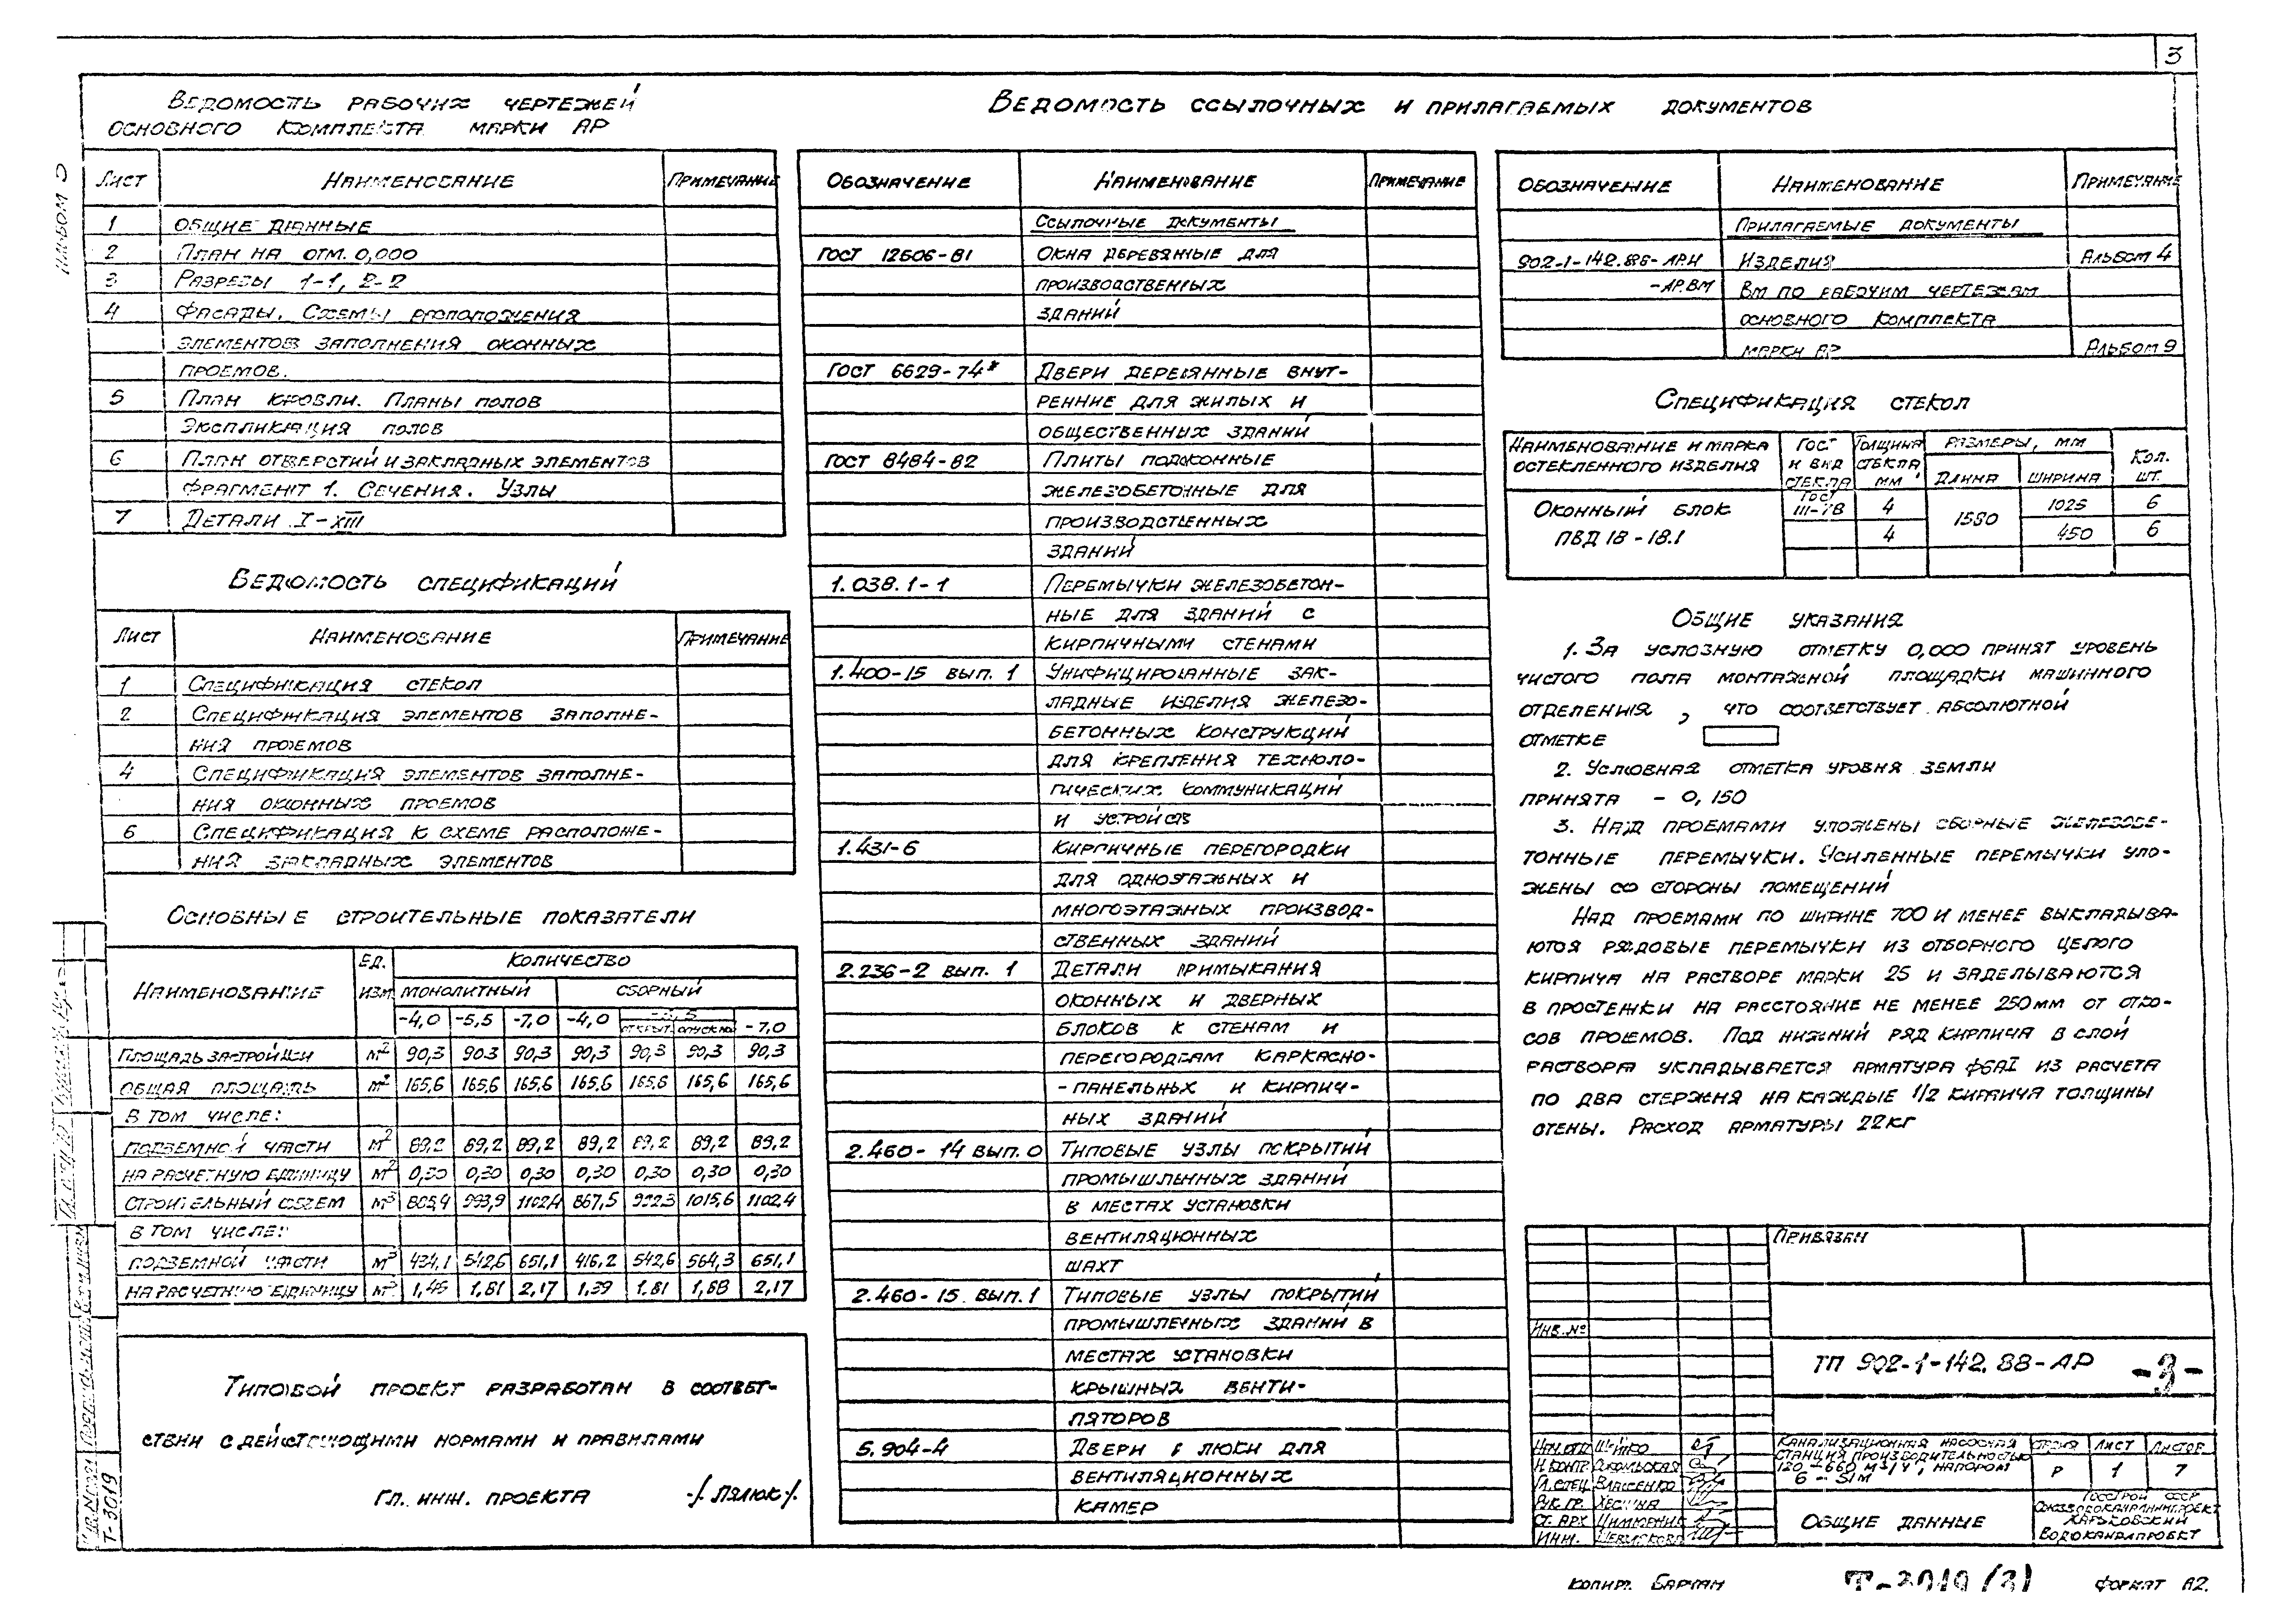 3
Альбом 3
Ведомость рабочих чертежей
основного комплекта марки АР
Лист Наименование Примечание
1 Общие данные
2 План на отм. 0,000
3 Разрезы 1-1, 2-2
4 Фасады. Схемы расположения
элементов заполнения оконных
проемов.
5 План кровли. Планы полов
Экспликация полов
6 План отверстий и закладных элементов
Фрагмент 1. Сечения. Узлы
7 Детали I-XIII
Ведомость спецификаций
Лист Наименование Примечание
1 Спецификация стекол
2 Спецификация элементов заполне-
ния проемов
4 Спецификация элементов заполне-
ния оконных проемов
6 Спецификация к схеме расположе-
ния закладных элементов
Основные строительные показатели
Наименование Ед. изм. Количество
монолитный сборный
-4,0 -5,5 -7,0 -4,0 -5,5 -7,0
открыт. опускн.
Площадь застройки м² 90,3 90,3 90,3 90,3 90,3 90,3 90,3
Общая площадь м² 165,6 165,6 165,6 165,6 165,6 165,6 165,6
в том числе:
подземной части м² 89,2 89,2 89,2 89,2 89,2 89,2 89,2
на расчетную единицу м² 0,30 0,30 0,30 0,30 0,30 0,30 0,30
Строительный объем м³ 993,9 1102,4 867,5 992,3 1015,6 1102,4
в том числе:
подземной части м³ 434,1 542,6 651,1 416,2 542,6 564,3 651,1
на расчетную единицу м³ 1,45 1,81 2,17 1,39 1,81 1,88 2,17
Типовой проект разработан в соответ-
ствии с действующими нормами и правилами
Гл. инж. проекта -/. Пялюк /.
Т-3019
Ведомость ссылочных и прилагаемых документов
Обозначение Наименование Примечание
Ссылочные документы
ГОСТ 12506-81 Окна деревянные для
производственных
зданий
ГОСТ 6629-74* Двери деревянные внут-
ренние для жилых и
общественных зданий
ГОСТ 8484-82 Плиты подоконные
железобетонные для
производственных
зданий
1.038.1-1 Перемычки железобетон-
ные для зданий с
кирпичными стенами
1.400-15 вып. 1 Унифицированные зак-
ладные изделия железо-
бетонных конструкций
для крепления техноло-
гических коммуникаций
и устройств
1.431-6 Кирпичные перегородки
для одноэтажных и
многоэтажных производ-
ственных зданий
2.236-2 вып. 1 Детали примыкания
оконных и дверных
блоков к стенам и
перегородкам каркасно-
-панельных и кирпич-
ных зданий
2.460-14 вып. 0 Типовые узлы покрытий
промышленных зданий
в местах установки
вентиляционных
шахт
2.460-15. вып. 1 Типовые узлы покрытий
промышленных зданий в
местах установки
крышных венти-
ляторов
5.904-4 Двери и люки для
вентиляционных
камер
Обозначение Наименование Примечание
Прилагаемые документы
902-1-142.88-АР.И Изделия Альбом 4
-АР.ВМ Вм по рабочим чертежам
основного комплекта
марки АР Альбом 9
Спецификация стекол
Наименование и марка остекленного изделия ГОСТ и вид стекла Толщина стекла мм Размеры, мм Кол. шт.
Длина Ширина
Оконный блок ГОСТ 111-78 4 1580 1025 6
ПВД 18-18.1 4 450 6
Общие указания
1. За условную отметку 0,000 принят уровень
чистого пола монтажной площадки машинного
отделения, что соответствует абсолютной
отметке
2. Условная отметка уровня земли
принята - 0,150
3. Над проемами уложены сборные железобе-
тонные перемычки. Усиленные перемычки уло-
жены со стороны помещений
Над проемами по ширине 700 и менее выкладыва-
ются рядовые перемычки из отборного целого
кирпича на растворе марки 25 и заделываются
в простенки на расстояние не менее 250мм от отко-
сов проемов. Под нижний ряд кирпича в слой
раствора укладывается арматура ф6АI из расчета
по два стержня на каждые 1/2 кирпича толщины
стены. Расход арматуры 22кг
Привязан
Инв. №
ТП 902-1-142.88-АР -3-
Нач. отд. Шейко
Н. контр.
Гл. спец. Власенко
Рук. гр.
Ст. арх.
Инж.
Канализационная насосная
станция производительностью
120-660 м³/ч, напором
6-51м
Стадия Лист Листов
Р 1 7
Общие данные
Госстрой СССР
Союзводоканалниипроект
Харьковский
Водоканалпроект
Копир. Т-3019 (3) Формат А2.